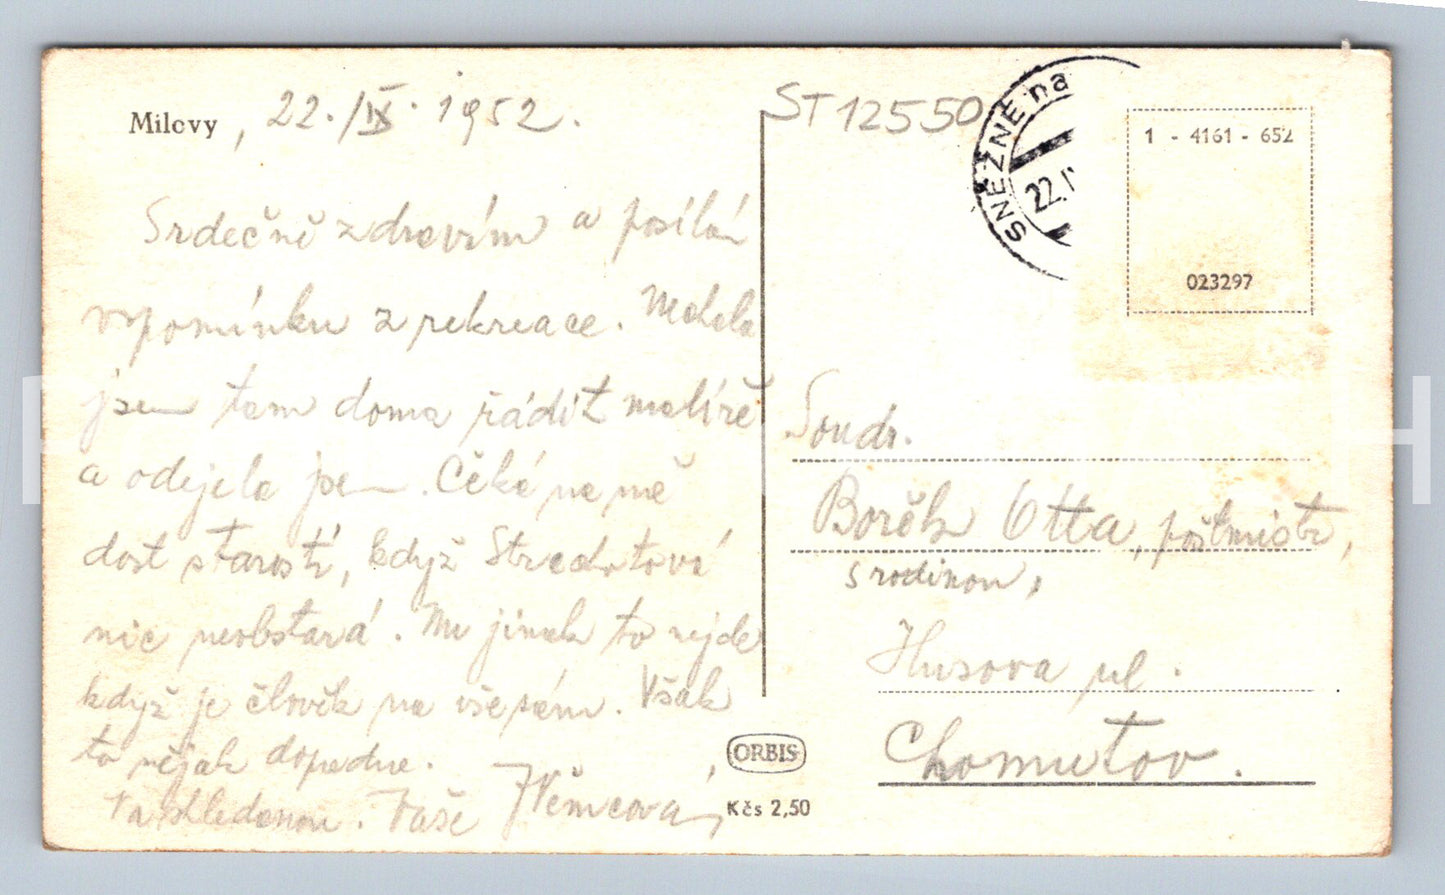 Milovy, 22./IX. 1952.
Srdečně zdravím a posílám
vzpomínku z rekreace. Nechala
jsem tam doma řádit malíře
a odjela jsem. Čeká na mě
dost starostí, když
nic neobstará. No jinak to nejde
když je člověk na vše sám. Však
to nějak dopadne.
Na shledanou. Vaše Němcová
ORBIS
Kčs 2,50
ST12550
SNĚŽNÉ na
22.
1 - 4161 - 652
023297
Soudr.
Borěk Otta, poštmistr,
s rodinou,
Husova ul.
Chomutov.